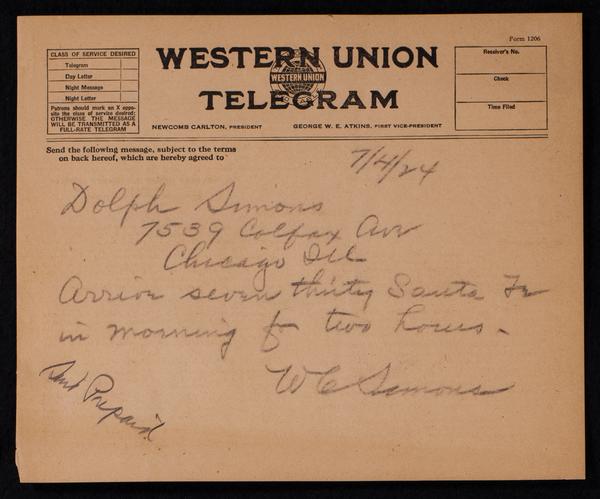 Form 1206
CLASS OF SERVICE DESIRED
Telegram
Day Letter
Night Message
Night Letter
Patrons should mark an X oppo-
site the class of service desired;
OTHERWISE THE MESSAGE
WILL BE TRANSMITTED AS A
FULL-RATE TELEGRAM
WESTERN UNION
WESTERN UNION
TELEGRAM
NEWCOMB CARLTON, PRESIDENT GEORGE W. E. ATKINS, FIRST VICE-PRESIDENT
Receiver's No.
Check
Time Filed
Send the following message, subject to the terms
on back hereof, which are hereby agreed to
7/4/24
Dolph Simons
7539 Colfax Ave
Chicago Ill
Arrive seven thirty Santa Fe
in morning for two hours.
W C Simons
Sent Prepaid